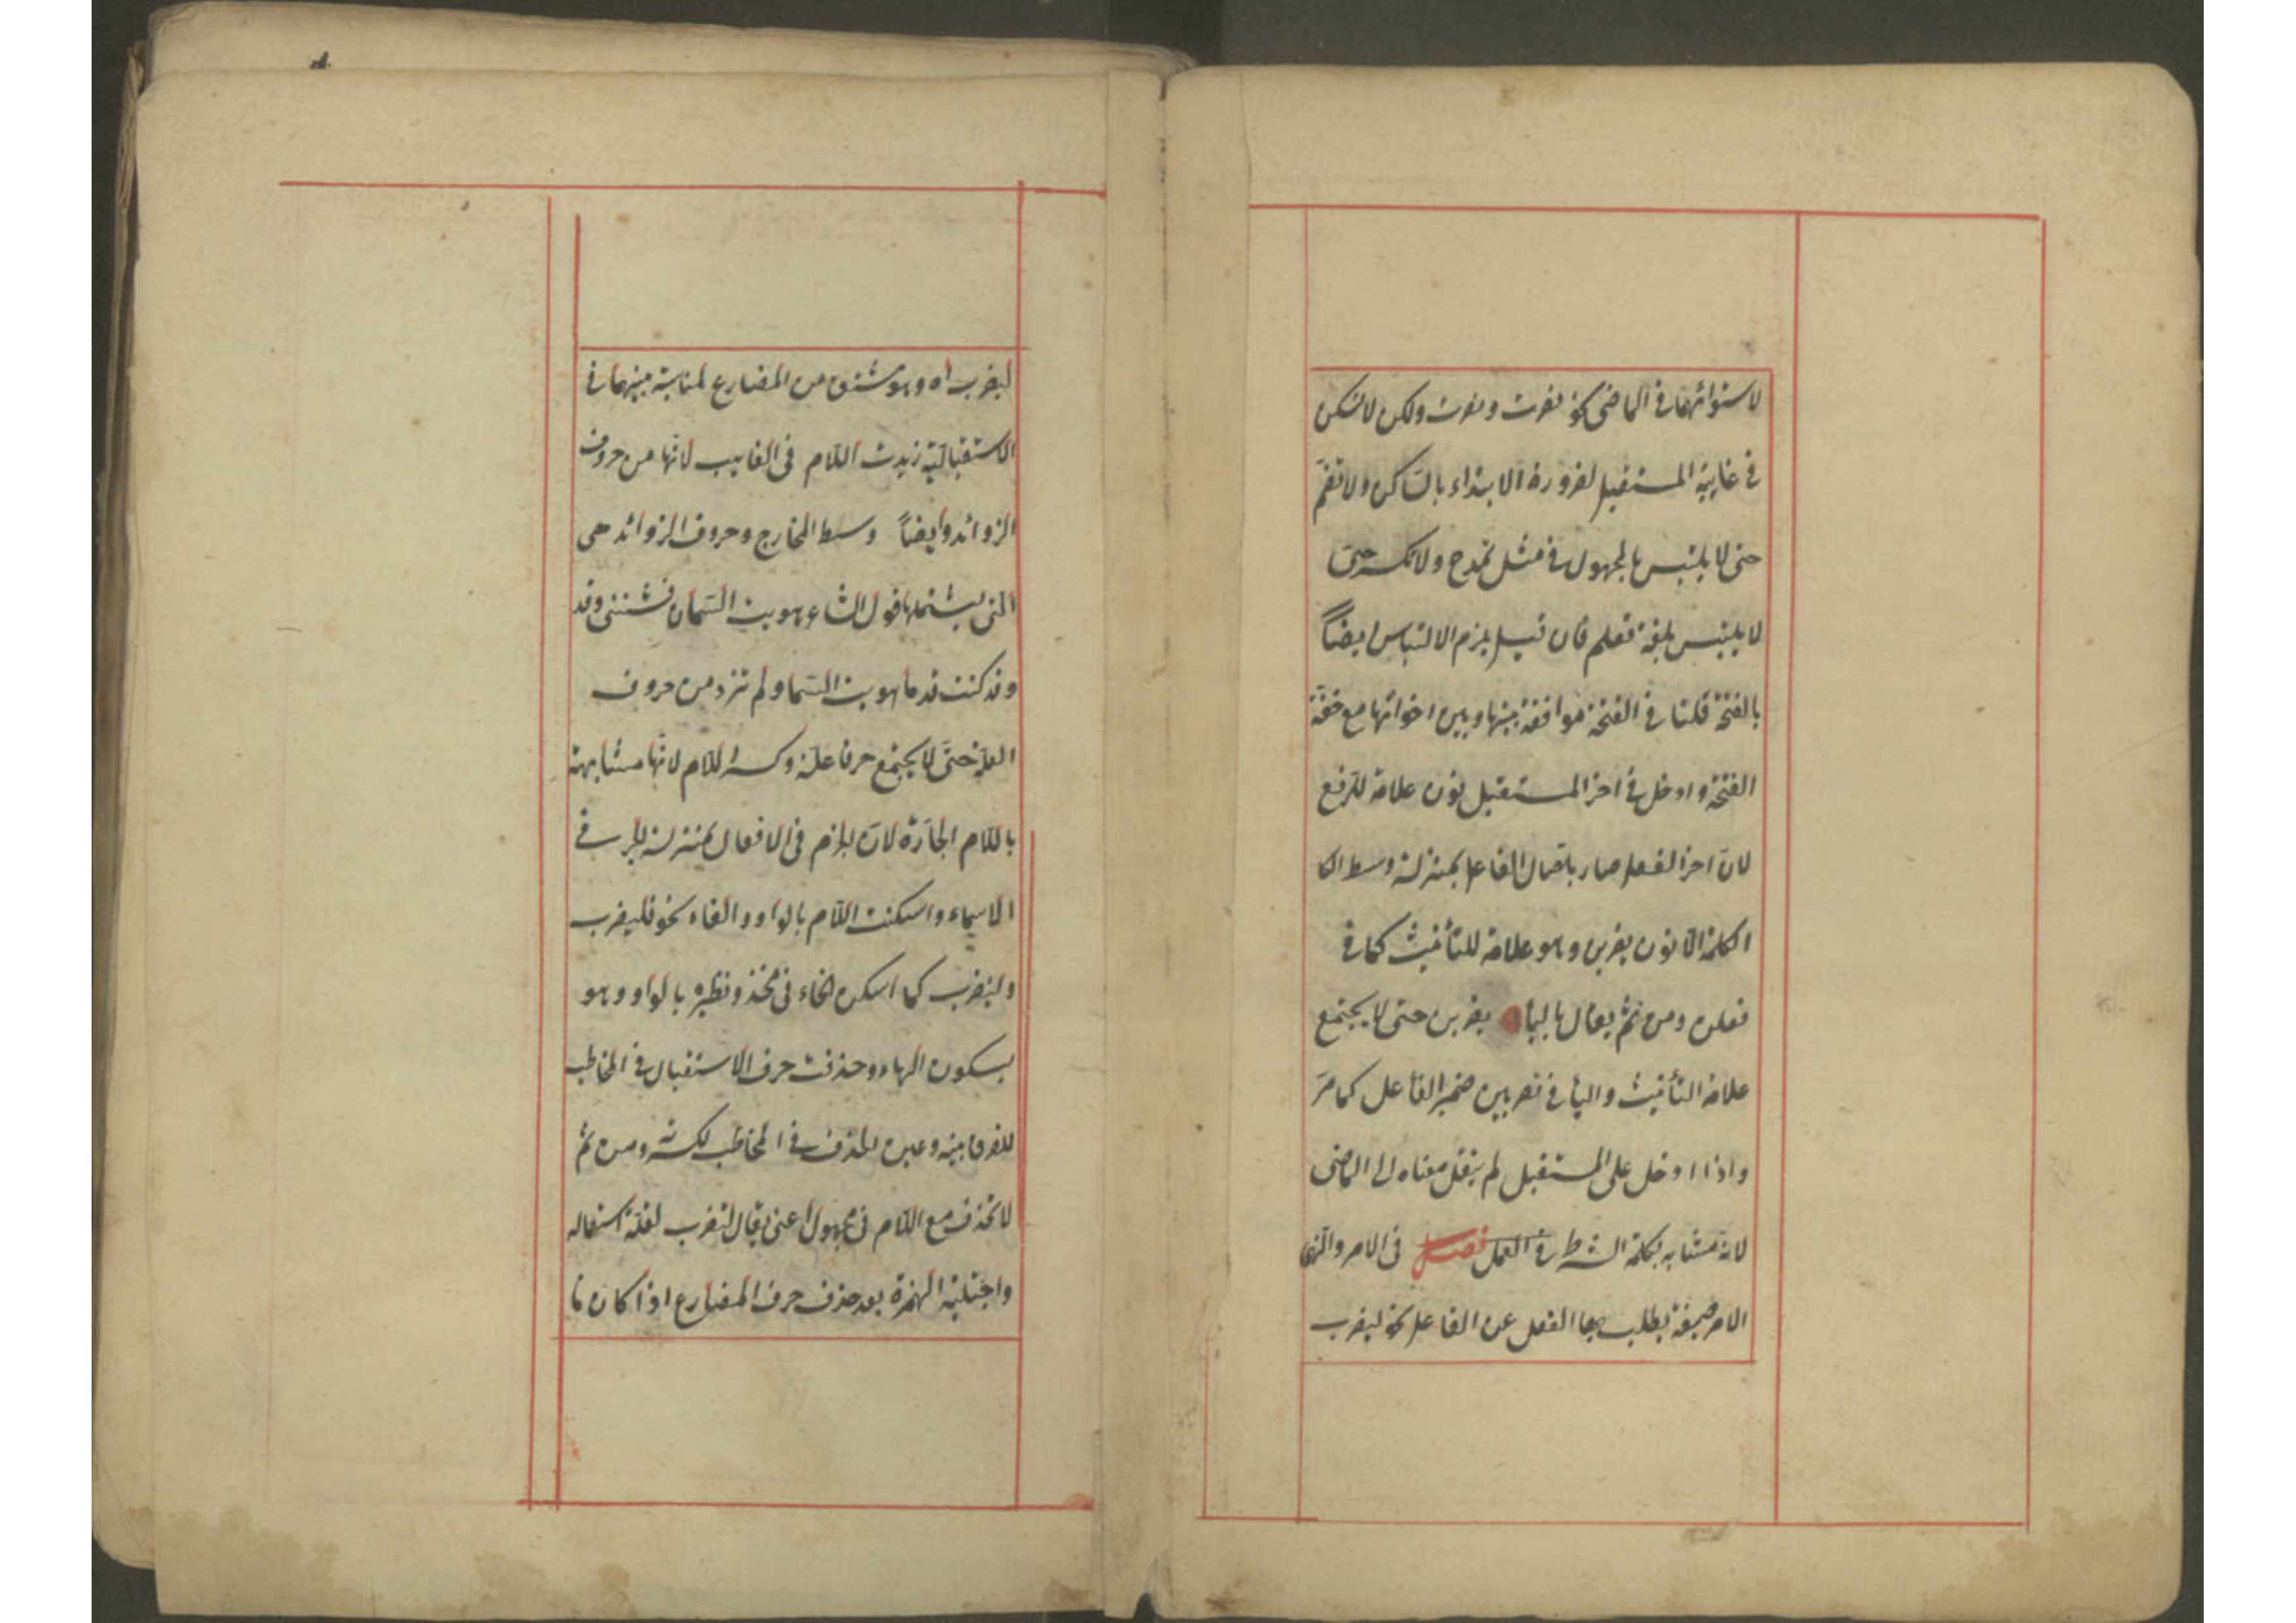 لاستوائهما فى الماضى نحو نصرت ونصرت ولكن لا تسكن
فى غايبة المستقبل لضرورة الابتداء بالساكن ولا تضم
حتى لا يلتبس بالمجهول فى مثل تمدح ولا تكسر حتى
لا يلتبس بلغة تعلم فان قيل يلزم الالتباس ايضاً
بالفتحة قلنا فى الفتحة موافقة بينها وبين اخواتها مع خفة
الفتحة وادخل فى اخر المستقبل نون علامة للرفع
لان اخر الفعل صار باتصال الفاعل بمنزلة وسط الكا
الكلمة الا نون يضربن وهو علامة للتأنيث كما فى
فعلن ومن ثم يقال بالياء يضربن حتى لا يجتمع
علامة التأنيث واليأ فى تضربين ضمير الفاعل كما مر
واذا ادخل على المستقبل لم ينقل معناه الى الماضى
لانه مشابه بكلمة الشرط فى العمل فصل فى الامر والنهى
الامر صيغة يطلب بها الفعل عن الفاعل نحو ليضرب
ليضرب اه وهو مشتق من المضارع لمناسبة بينهما فى
الاستقبالية زيدت اللام فى الغايب لانها من حروف
الزوائد وايضاً وسط المخارج وحروف الزوائد هى
التى يشتملها قول الشاعر هويت السمان فشيننى وقد
وقد كنت قدما هويت السما ولم تزد من حروف
العلة حتى لا يجتمع حرفا علة وكسر اللام لانها مشابهة
باللام الجارة لان الجزم فى الافعال بمنزلة الجر فى
الاسماء واسكنت اللام بالواو والفاء نحو فليضرب
وليضرب كما اسكن الخاء فى فخذ ونظيره بالواو وهو
بسكون الهاء وحذفت حرف الاستقبال فى المخاطب
للفرق بينه وعين الحذف فى المخاطب لكثرته ومن ثم
لا تحذف مع اللام فى مجهول اعنى يقال لتضرب لقلة استعماله
واجتلبة الهمزة بعد حذف حرف المضارع اذا كان ما